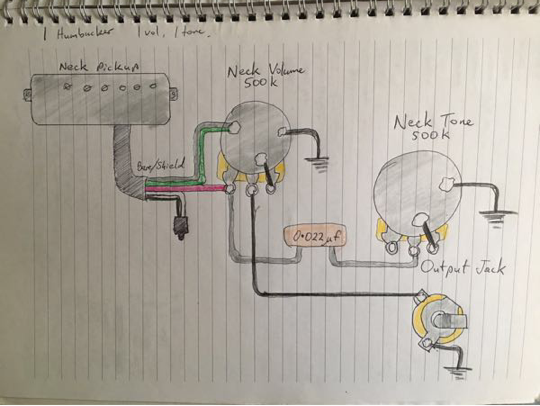 1 Humbucker 1 vol, 1 tone.
Neck Pickup
Neck Volume
500k
Neck Tone
500k
Bare/Shield
0.022µf
Output Jack